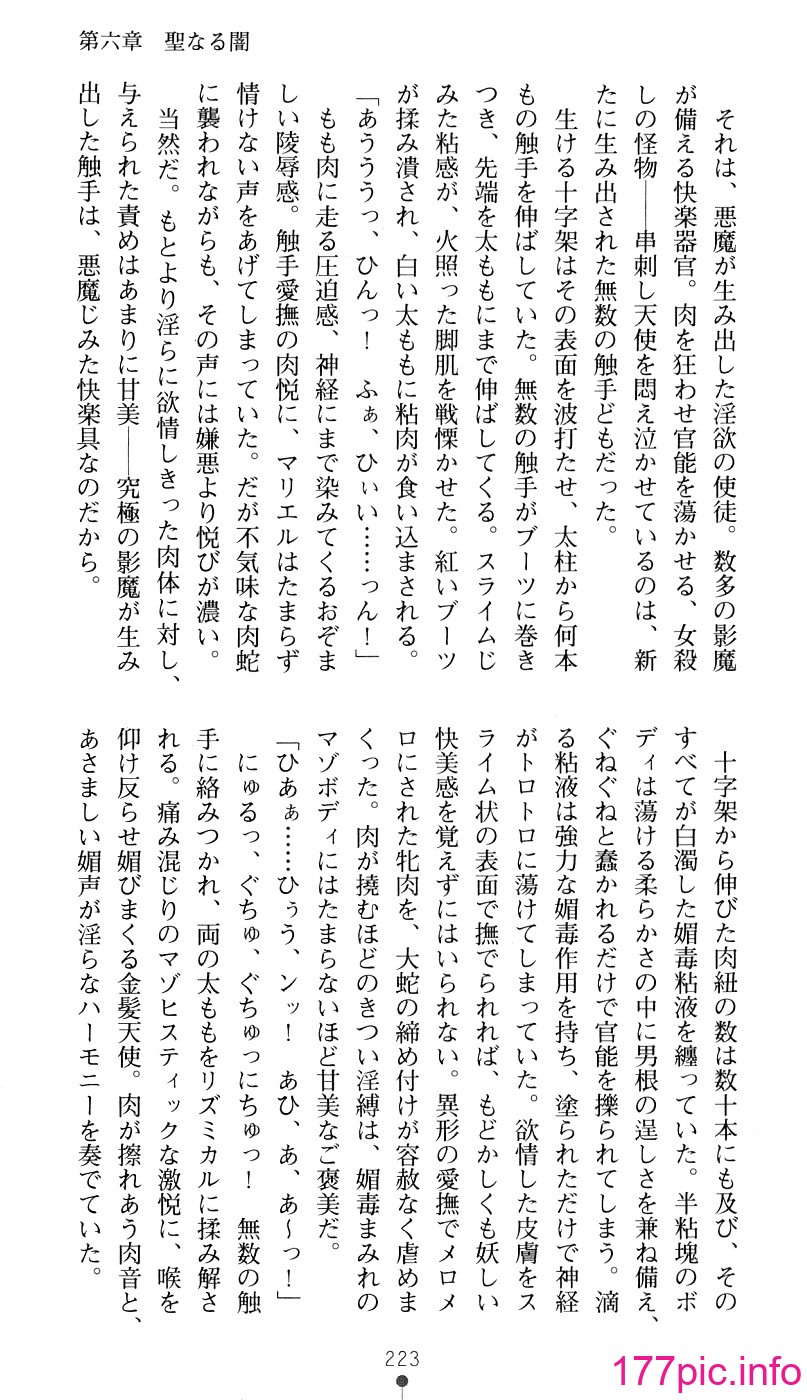 第六章　聖なる闇
　それは、悪魔が生み出した淫欲の使徒。数多の影魔
が備える快楽器官。肉を狂わせ官能を蕩かせる、女殺
しの怪物――串刺し天使を悶え泣かせているのは、新
たに生み出された無数の触手どもだった。
　生ける十字架はその表面を波打たせ、太柱から何本
もの触手を伸ばしていた。無数の触手がブーツに巻き
つき、先端を太ももにまで伸ばしてくる。スライムじ
みた粘感が、火照った脚肌を戦慄かせた。紅いブーツ
が揉み潰され、白い太ももに粘肉が食い込まされる。
「あうううっ、ひんっ！　ふぁ、ひぃい……っん！」
　もも肉に走る圧迫感、神経にまで染みてくるおぞま
しい陵辱感。触手愛撫の肉悦に、マリエルはたまらず
情けない声をあげてしまっていた。だが不気味な肉蛇
に襲われながらも、その声には嫌悪より悦びが濃い。
　当然だ。もとより淫らに欲情しきった肉体に対し、
与えられた責めはあまりに甘美――究極の影魔が生み
出した触手は、悪魔じみた快楽具なのだから。
　十字架から伸びた肉紐の数は数十本にも及び、その
すべてが白濁した媚毒粘液を纏っていた。半粘塊のボ
ディは蕩ける柔らかさの中に男根の逞しさを兼ね備え、
ぐねぐねと蠢かれるだけで官能を擽られてしまう。滴
る粘液は強力な媚毒作用を持ち、塗られただけで神経
がトロトロに蕩けてしまっていた。欲情した皮膚をス
ライム状の表面で撫でられれば、もどかしくも妖しい
快美感を覚えずにはいられない。異形の愛撫でメロメ
ロにされた牝肉を、大蛇の締め付けが容赦なく虐めま
くった。肉が撓むほどのきつい淫縛は、媚毒まみれの
マゾボディにはたまらないほど甘美なご褒美だ。
「ひあぁ……ひぅう、ンッ！　あひ、あ、あ～っ！」
　にゅるっ、ぐちゅ、ぐちゅっにちゅっ！　無数の触
手に絡みつかれ、両の太ももをリズミカルに揉み解さ
れる。痛み混じりのマゾヒスティックな激悦に、喉を
仰け反らせ媚びまくる金髪天使。肉が擦れあう肉音と、
あさましい媚声が淫らなハーモニーを奏でていた。
223
177pic.info